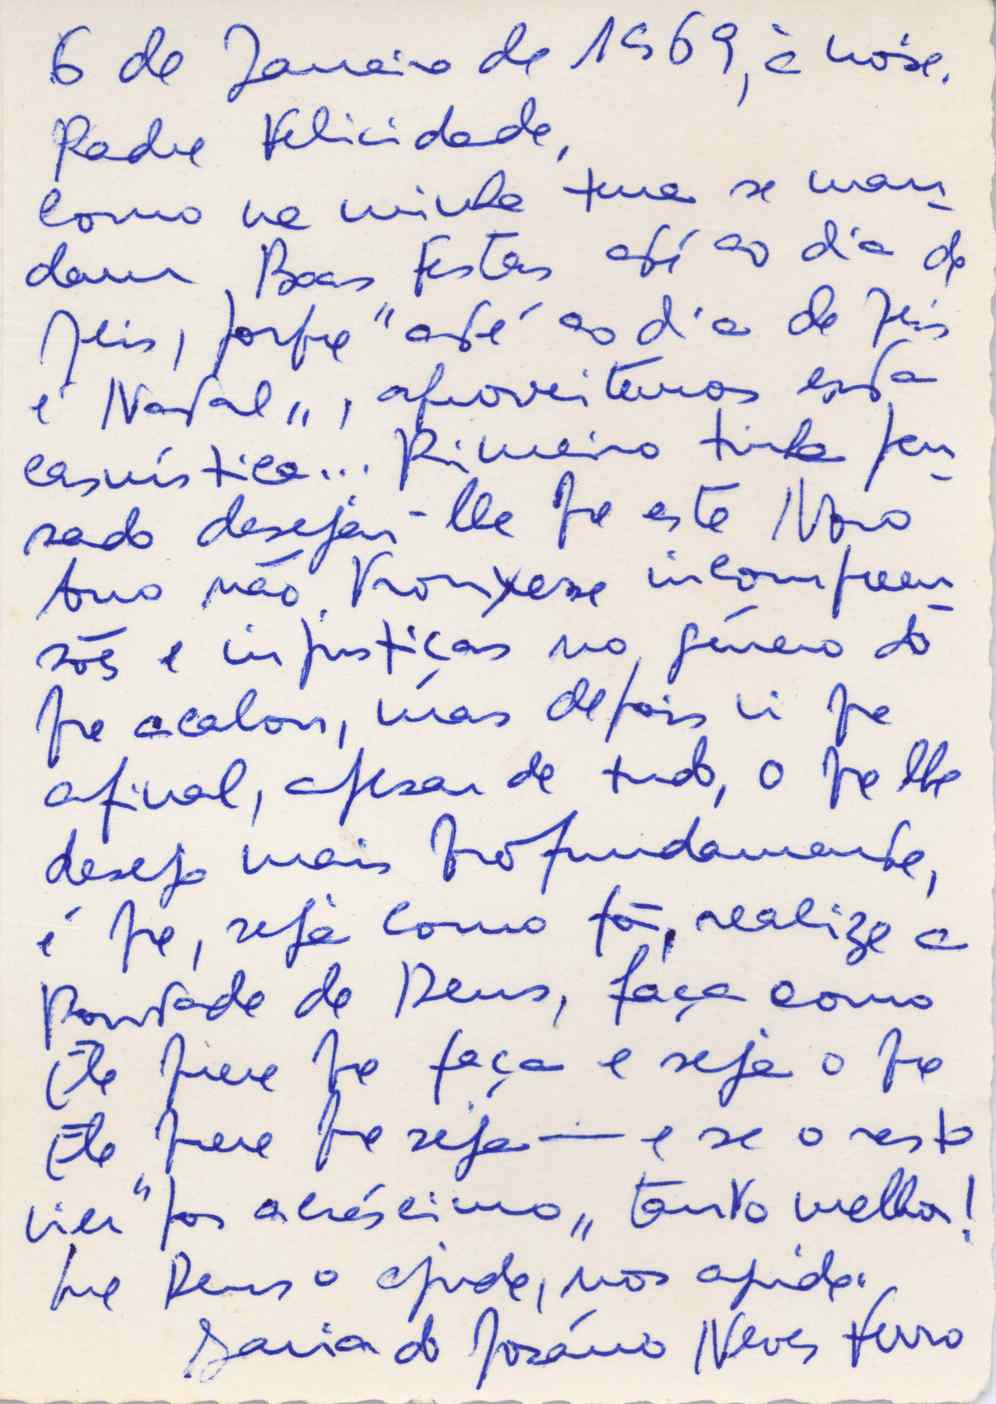 6 de Janeiro de 1969, à noite.
Padre Felicidade,
Como na minha terra se man-
dam Boas Festas até ao dia de
Reis, porque "até ao dia de Reis
é Natal", aproveitamos esta
casuística... Primeiro tinha pen-
sado desejar-lhe que este Novo
Ano não trouxesse incompreen-
sões e injustiças no género do
que acabou, mas depois vi que
afinal, apesar de tudo, o que lhe
desejo mais profundamente,
é que, seja como fôr, realize a
Vontade de Deus, faça como
Ele quere que faça e seja o que
Ele quere que seja — e se o resto
vier "por acréscimo" tanto melhor!
Que Deus o ajude, nos ajude.
Maria do Rosário Neves Ferro